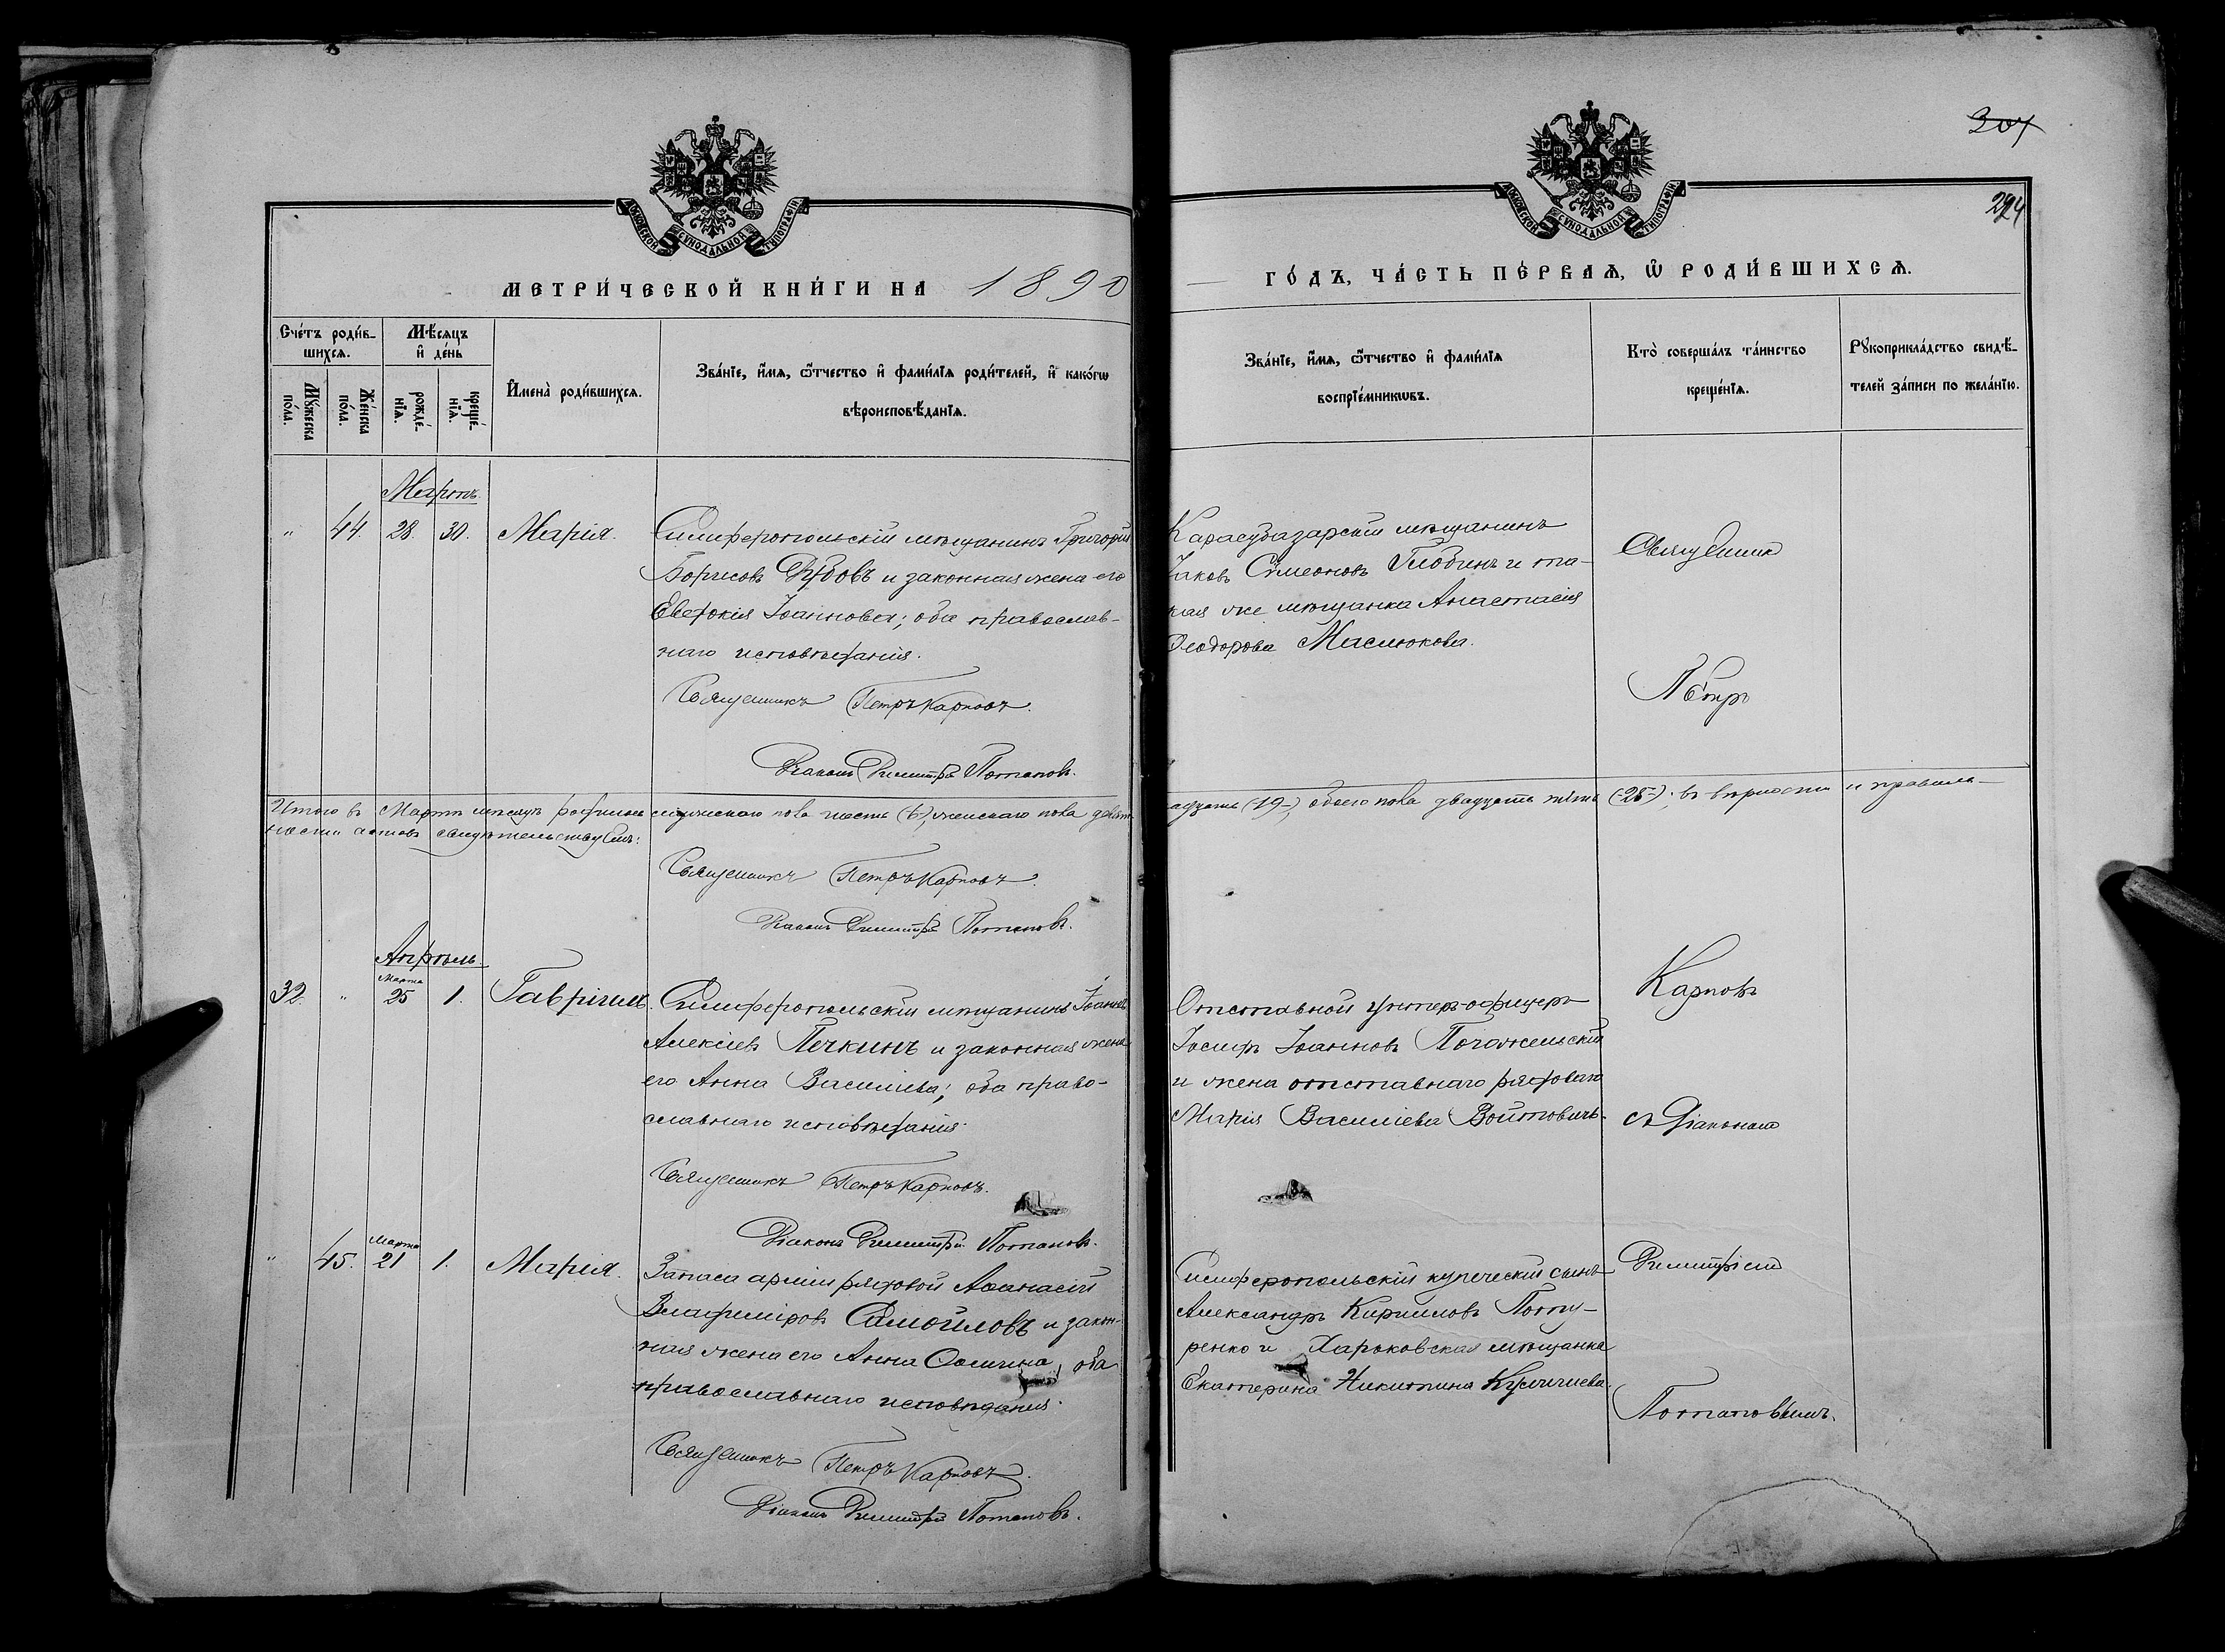 307
294
МОСКОВСКОЙ СУНОДАЛЬНОЙ ТИПОГРАФІИ
МОСКОВСКОЙ СУНОДАЛЬНОЙ ТИПОГРАФІИ
МЕТРИ́ЧЕСКОЙ КНИ́ГИ НА 1890
ГО́ДЪ, ЧА́СТЬ ПЕ́РВАѦ, Ѡ҆ РОДИ́ВШИХСѦ.
Сче́тъ роди́в-
шихсѧ.
Мѹ́жеска по́ла.
Же́нска по́ла.
Мѣ́сѧцъ
и҆ де́нь
рожде́-
нїѧ.
креще́-
нїѧ.
И҆мена̀ роди́вшихсѧ.
Зва́нїе, и҆́мѧ, ѻ҆́тчество и҆ фами́лїѧ роди́телей, и҆ како́гѡ
вѣроисповѣ́данїѧ.
Зва́нїе, и҆́мѧ, ѻ҆́тчество и҆ фами́лїѧ
воспрїе́мникѡвъ.
Кто̀ соверша́лъ та́инство
креще́нїѧ.
Рꙋкоприкла́дство свидѣ́-
телей за́писи по жела́нїю.
Мартъ.
" 44. 28. 30. Марія.
Симферопольскій мѣщанинъ Григорій
Борисовъ Зубовъ и законная жена его
Евдокія Іоаннова; оба православ-
наго исповѣданія.
Священникъ Петръ Карповъ.
Діаконъ Димитрій Потаповъ.
Карасубазарскій мѣщанинъ
Іаковъ Симеоновъ Глобинъ и та-
кая же мѣщанка Анастасія
Ѳеодорова Маслюкова.
Священник
Пётръ
Итого въ Мартѣ мѣсяцѣ родилось мужескаго пола шесть (6), женскаго пола девят-
надцать (-19-), обоего пола двадцать пять (-25-); въ вѣрности и правиль-
ности актовъ свидѣтельствуемъ:
Священникъ Петръ Карповъ.
Діаконъ Димитрій Потаповъ.
Апрѣль.
32. " Марта 25 1. Гавріилъ.
Симферопольскій мѣщанинъ Іоаннъ
Алексіевъ Печкинъ и законная жена
его Анна Василіева; оба право-
славнаго исповѣданія.
Священникъ Петръ Карповъ.
Діаконъ Димитрій Потаповъ.
Отставной унтеръ-офицеръ
Іосифъ Іоанновъ
и жена отставнаго рядоваго
Марія Василіева Войтовичъ.
Карповъ
съ Діакономъ
" 45. Марта 21 1. Марія.
Запаса арміи рядовой Аѳанасій
Владиміровъ Самойловъ и закон-
ная жена его Анна, оба
православнаго исповѣданія.
Священникъ Петръ Карповъ.
Діаконъ Димитрій Потаповъ.
Симферопольскій купеческій сынъ
Александръ Кирилловъ Поту-
ренко и Харьковская мѣщанка
Екатерина Никитина
Димитріем
Потаповымъ.